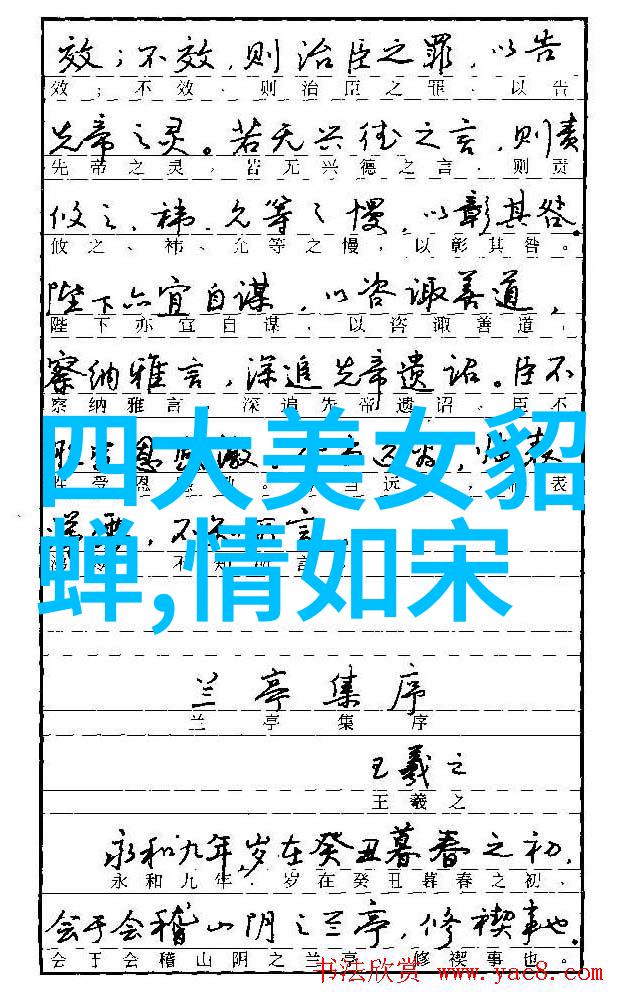 效；不效，则治臣之罪，以告
效；不效、则治臣之罪、以告
先帝之灵。若无兴德之言，则责
先帝之灵，若无兴德之言、则责
攸之、祎、允等之慢，以彰其咎。
攸之、祎、允等之慢，以彰其咎。
陛下亦宜自谋，以咨诹善道，
陛下亦宜自谋，以咨诹善道，
察纳雅言，深追先帝遗诏。臣不
察纳雅言 深追先帝遗诏。臣不
四大美女貂
蝉,情如宋
兰亭集序
兰亭集序
王羲之
王羲之
永和九年,岁在癸丑暮春之初,
永和九年.岁在癸丑暮春之初、
会于会稽山阴之兰亭，修禊事也。
会于会稽山阴之兰亭 修禊事也。
书法欣赏 www.yac8.com